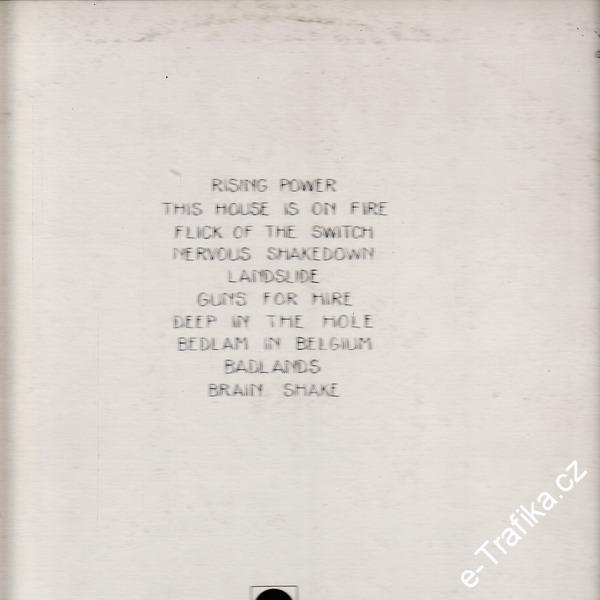 RISING POWER
THIS HOUSE IS ON FIRE
FLICK OF THE SWITCH
NERVOUS SHAKEDOWN
LANDSLIDE
GUNS FOR HIRE
DEEP IN THE HOLE
BEDLAM IN BELGIUM
BADLANDS
BRAIN SHAKE
e-Trafika.cz